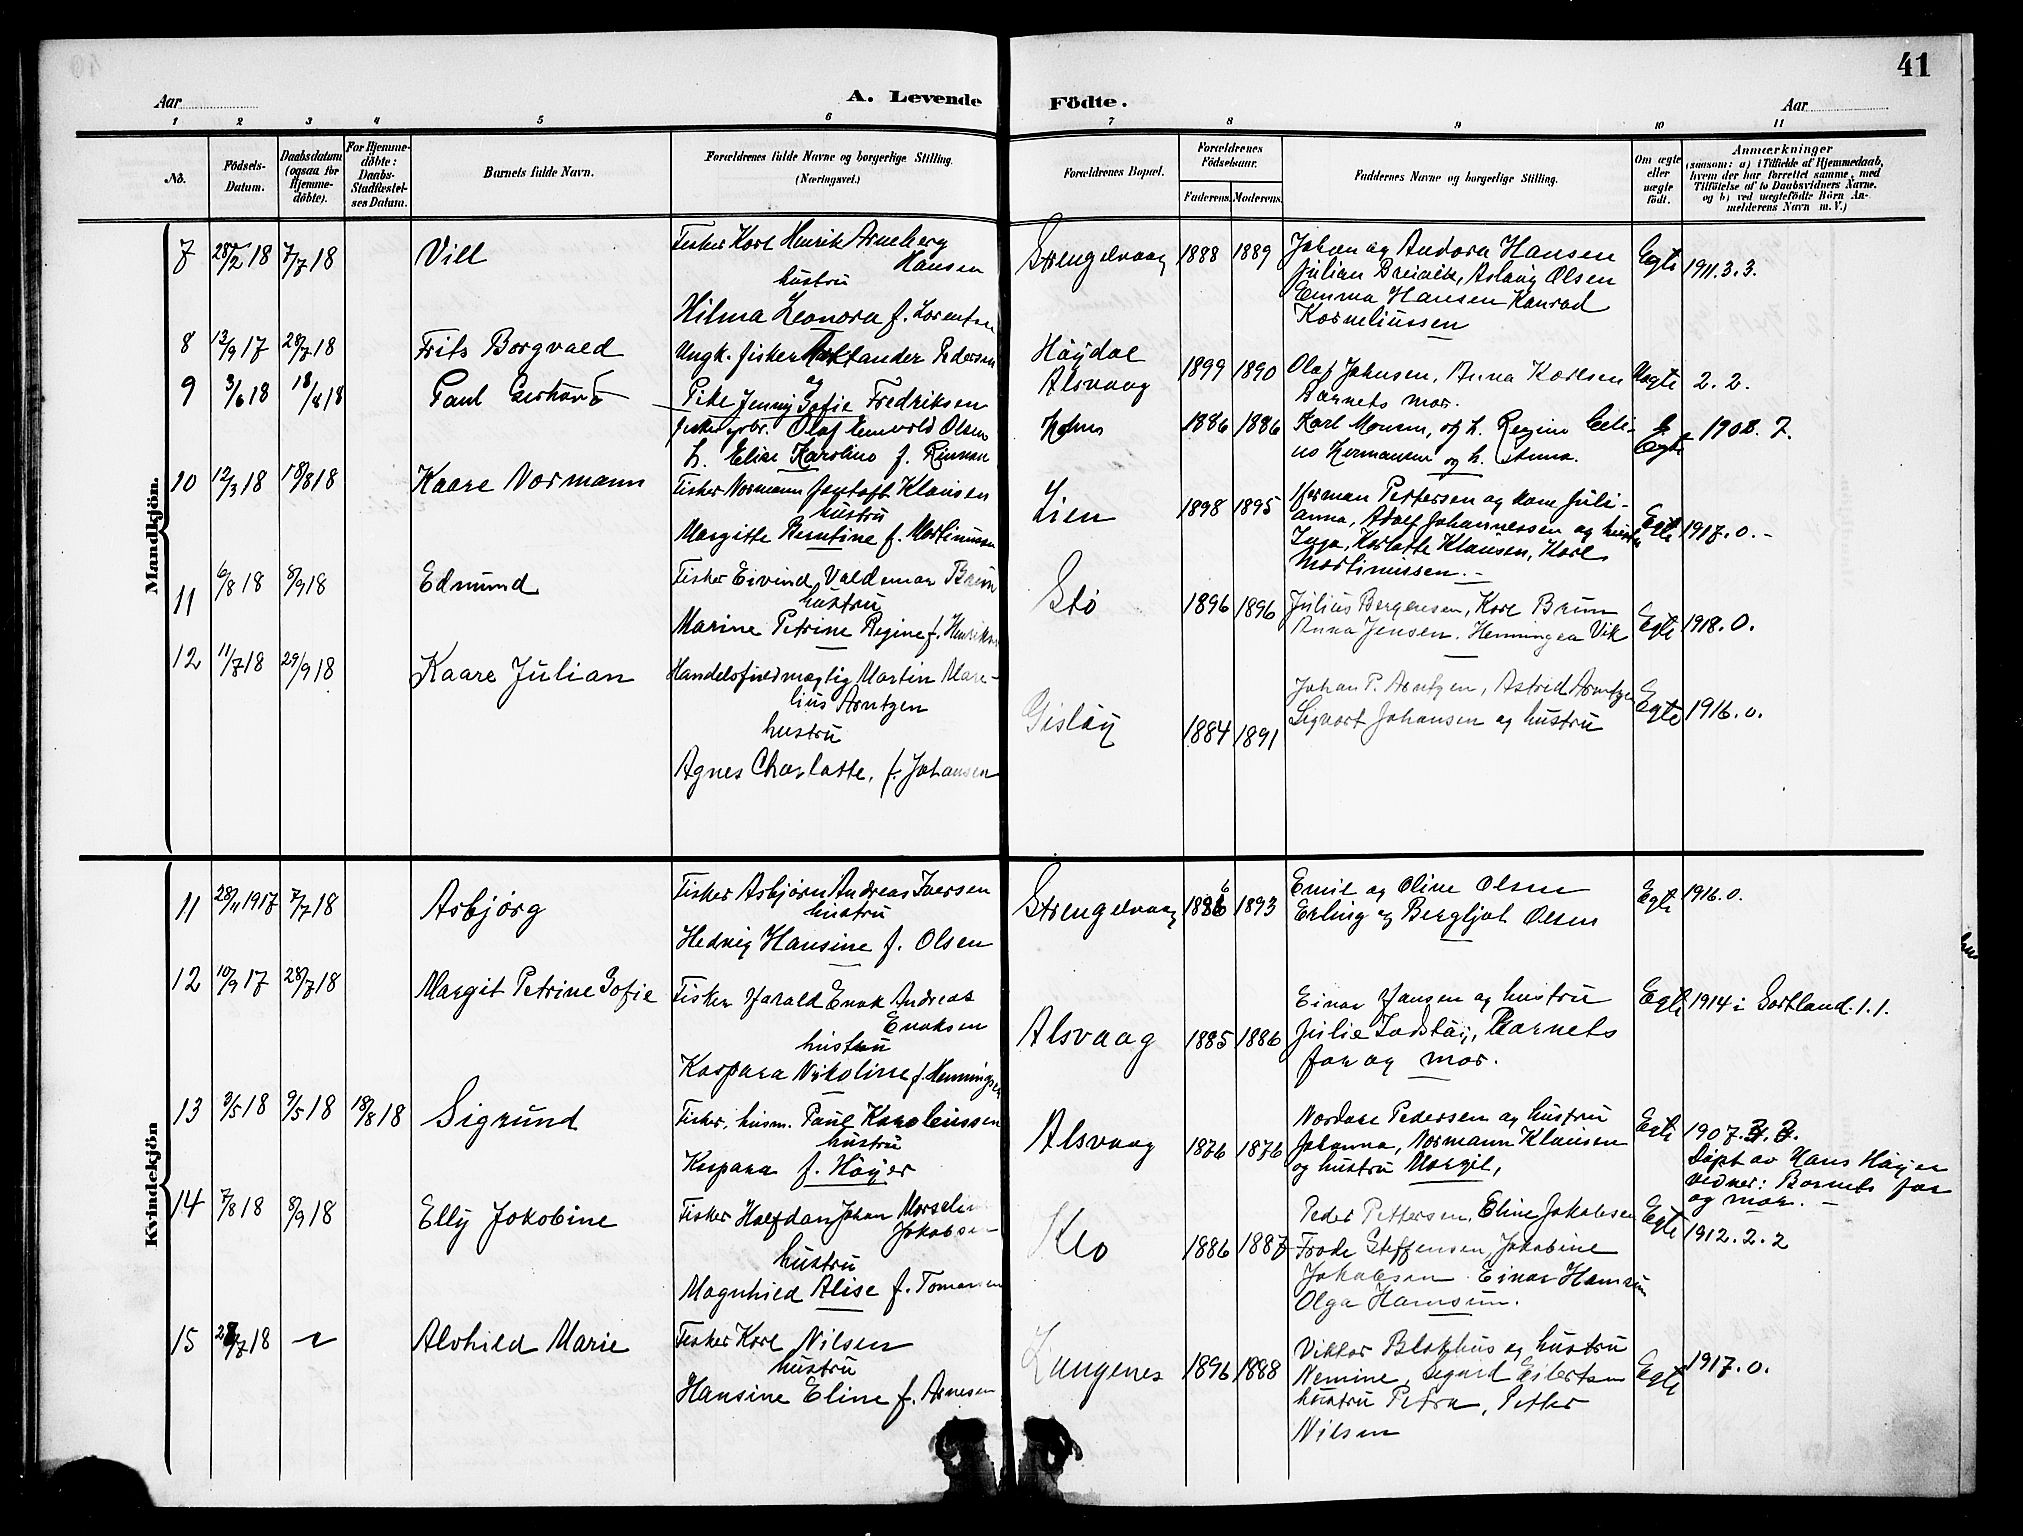 41
Aar
A. Levende Födte.
Aar
1 2 3 4 5 6 7 8 9 10 11
No.
Födsels-
Datum.
Daabsdatum
(ogsaa for
Hjemme-
döbte).
For Hjemme-
döbte:
Daabs-
Stadfæstel-
ses Datum.
Barnets fulde Navn.
Forældrenes fulde Navne og borgerlige Stilling.
(Næringsvei.)
Forældrenes Bopæl.
Forældrenes
Födselsaar.
Faderens. Moderens.
Faddernes Navne og borgerlige Stilling.
Om ægte
eller
uægte
födt.
Anmærkninger
(saasom: a) i Tilfælde af Hjemmedaab,
hvem der har forrettet samme, med
Tilföielse af to Daabsvidners Navne.
og b) ved uægtefödte Börn An-
melderens Navn m. V.)
Mandkjön.
7 28/2 18 7/7 18 Vill
Fisker Karl Henrik Arneberg
Hansen
hustru
Hilma Leonora f. Lorentsen
Strengelvaag 1888 1889
Johan og Andora Hansen
Julian Breivik, Aslaug Olsen
Emma Hansen Konrad
Korneliussen
Egte 1911.3.3.
8 12/9 17 28/7 18 Frits Borgvald
Ungk. fisker Pedersen
og
Pike Jenny Sofie Fredriksen
Höydal
Alsvaag 1899 1890
Olaf Johnsen, Anna Karlsen
Barnets mor.
Uegte 2.2.
9 3/6 18 18/8 18 Paul Gerhard
Olaf Olsen
h. Elise Karoline f. Rinnan
1886 1886
Karl Monsen, og h. Regine
Hermansen og h. Anna.
Egte 1908. 7.
10 12/3 18 18/8 18 Kaare Normann
Fisker Normann Jentoft Klausen
hustru
Margitte Berntine f. Martinussen
Lien 1898 1895
Herman Pettersen og kone Juli-
anna, Adolf Johannessen og hustru
Inga, Karlotte Klausen, Karl
Martinussen.-
Egte 1917.0.-
11 6/8 18 8/9 18 Edmund
Fisker Eivind Valdemar Brun
hustru
Marine Petrine Regine f. Henriksen
Stö 1896 1896
Julius Bergersen, Karl Brun
Anna Jensen. Henningea Vik
Egte 1918.0.
12 11/7 18 29/9 18 Kaare Julian
Handelsfuldmægtig Martin Mare-
lius Arntzen
hustru
Agnes Charlotte, f. Johansen
Gislöy 1884 1891
Johan P. Arntzen, Astrid Arntzen
Sigvart Johansen og hustru
Egte 1916.0.
Kvindekjön
11 28/11 1917 7/7 18 Asbjörg
Fisker Asbjörn Andreas Iversen
hustru
Hedvig Hansine f. Olsen
Strengelvaag 1886 1893
Emil og Oline Olsen
Erling og Bergljot Olsen
Egte 1916.0.
12 10/9 17 28/7 18 Margit Petrine Sofie
Fisker Harald Enok Andreas
Enoksen
hustru
Kaspara Nikoline f. Henningsen
Alsvaag 1885 1886
Einar Hansen og hustru
Julie Barnets
far og mor.
Egte 1914 i Sortland. 1.1.
13 3/5 18 9/5 18 18/8 18 Sigrund
Fisker, husm. Paul Karoleussen
hustru
Kaspara f. Höyer
Alsvaag 1876 1876
Nordare Pedersen og hustru
Johanna, Normann Klausen
og hustru Margit,
Egte 1907.
Döpt av Hans Höyer
vidner: Barnets far
og mor.-
14 7/8 18 8/9 18 Elly Jokobine
Fisker Halfdan Johan
Jakobsen
hustru
Magnhild Alise f. Tomassen
Klo 1886 1887
Peder Pettersen, Eline Jakobsen
Frode Steffensen, Jakobine
Jakobsen. Einar Hamsun
Olga Hamsun.
Egte 1912.2.2
15 18 Alvhild Marie
Fisker Karl Nilsen
hustru
Hansine Eline f. Arnesen
Langenes 1896 1888
Viktor Blokhus og hustru
Nemine, Sigurd Eilertsen
hustru Petra, Petter
Nilsen
Egte 1917.0.